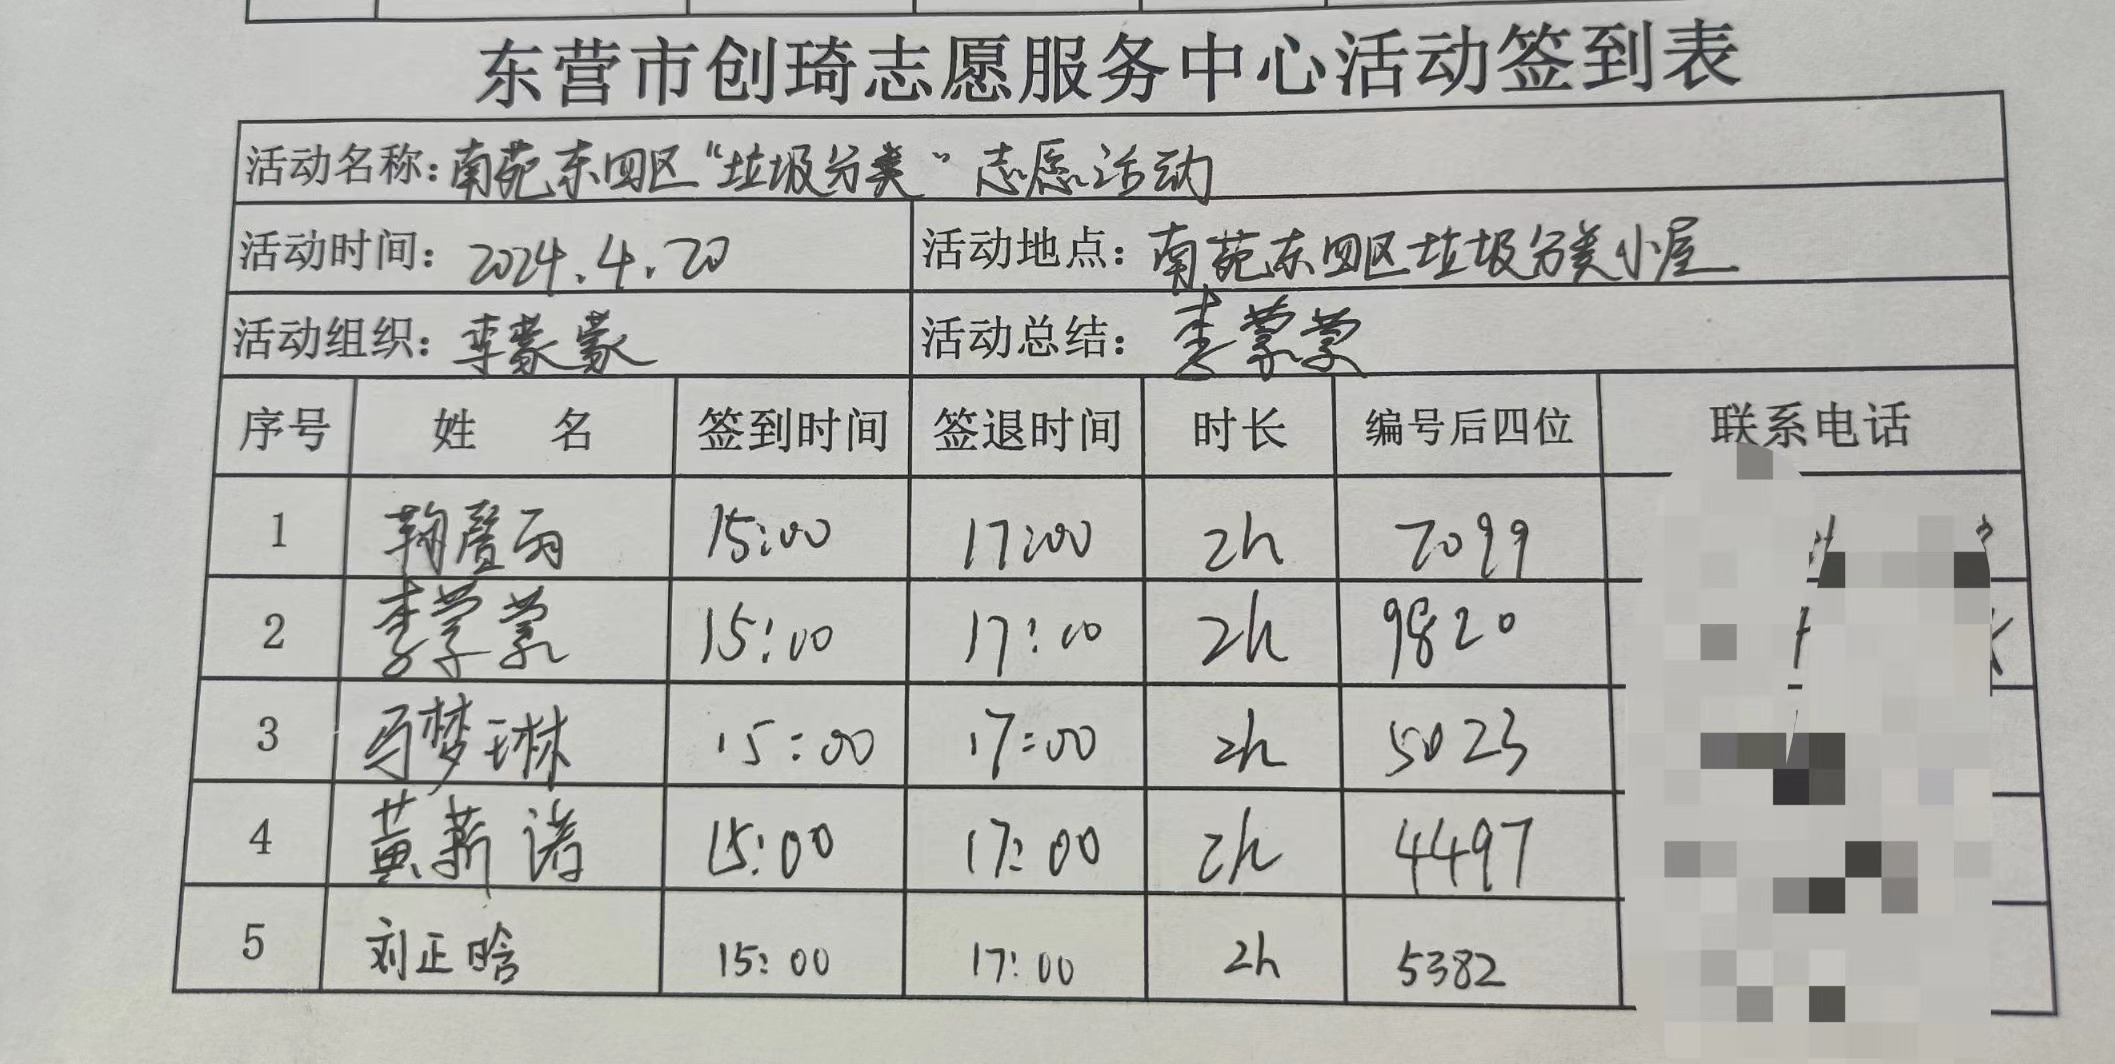 东营市创琦志愿服务中心活动签到表
活动名称：南苑东四区“垃圾分类”志愿活动
活动时间：2024.4.20 活动地点：南苑东四区垃圾分类小屋
活动组织：李蒙蒙 活动总结：李蒙蒙
序号 姓 名 签到时间 签退时间 时长 编号后四位 联系电话
1 15:00 17:00 2h 7099
2 李蒙蒙 15:00 17:00 2h 9820
3 马梦琳 15:00 17:00 2h 5023
4 黄薪诺 15:00 17:00 2h 4497
5 刘正晗 15:00 17:00 2h 5382